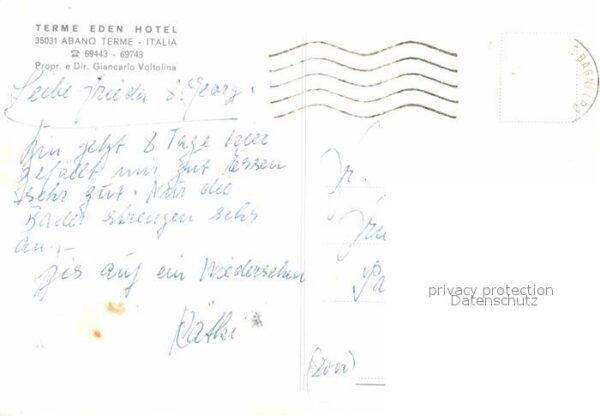 TERME EDEN HOTEL
35031 ABANO TERME - ITALIA
☎ 69443 - 69743
Propr. e Dir. Giancarlo Voltolina
Liebe Frieda & Georg.
Bin jetzt 8 Tage hier
gefällt mir gut Essen
sehr gut. Nur die
Bäder strengen sehr
an.
Bis auf ein Wiedersehen
Käthe
Fr.
privacy protection
Datenschutz